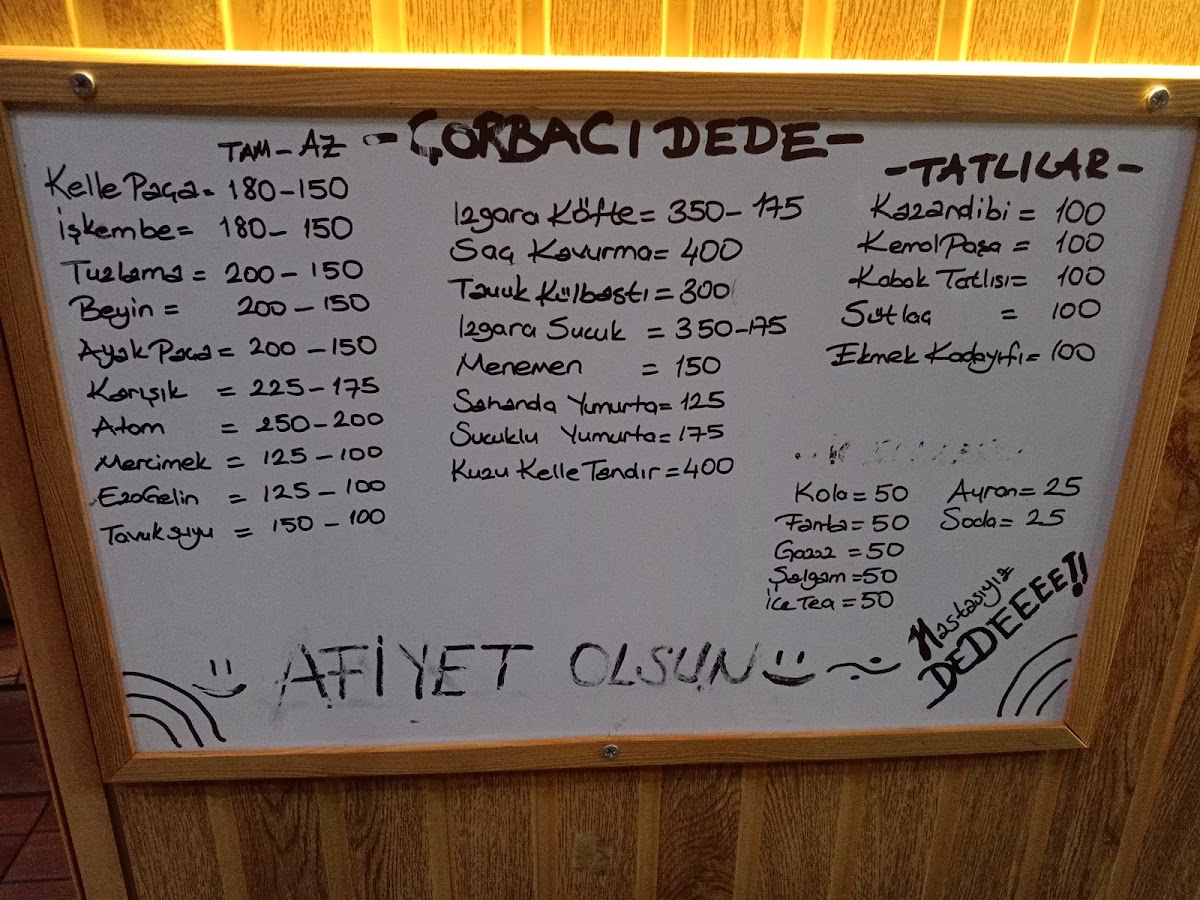 - ÇORBACI DEDE -
TAM - AZ
Kelle Paça = 180 - 150
İşkembe = 180 - 150
Tuzlama = 200 - 150
Beyin = 200 - 150
Ayak Paça = 200 - 150
Karışık = 225 - 175
Atom = 250 - 200
Mercimek = 125 - 100
EzoGelin = 125 - 100
Tavuk suyu = 150 - 100
Izgara Köfte = 350 - 175
Saç Kavurma = 400
Tavuk Külbastı = 300
Izgara Sucuk = 350 - 175
Menemen = 150
Sahanda Yumurta = 125
Sucuklu Yumurta = 175
Kuzu Kelle Tandır = 400
- TATLILAR -
Kazandibi = 100
KemalPaşa = 100
Kabak Tatlısı = 100
Sütlaç = 100
Ekmek Kadayıfı = 100
Kola = 50
Fanta = 50
Gazoz = 50
Şalgam = 50
İce Tea = 50
Ayran = 25
Soda = 25
AFİYET OLSUN
Hastasıyız
DEDEEEE!!